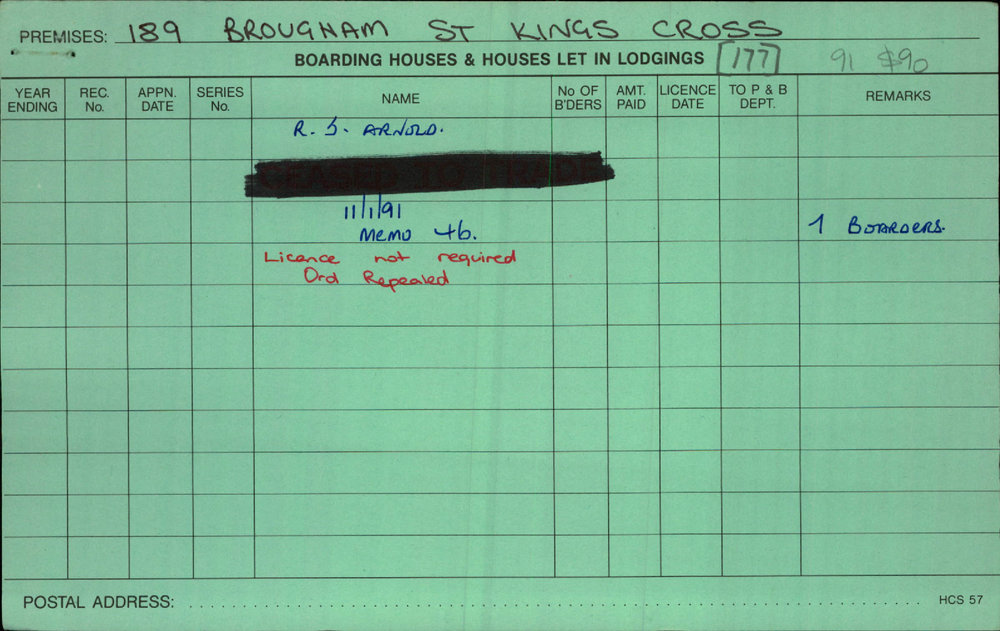 PREMISES: 189 BROUGHAM ST KINGS CROSS
BOARDING HOUSES & HOUSES LET IN LODGINGS [177] 91 $90
YEAR ENDING REC. No. APPN. DATE SERIES No. NAME No OF B'DERS AMT. PAID LICENCE DATE TO P & B DEPT. REMARKS
R. J. ARNOLD.
CEASED TO TRADE
11/1/91
MEMO 46. 7 BOARDERS.
Licence not required
Ord Repealed
POSTAL ADDRESS: HCS 57